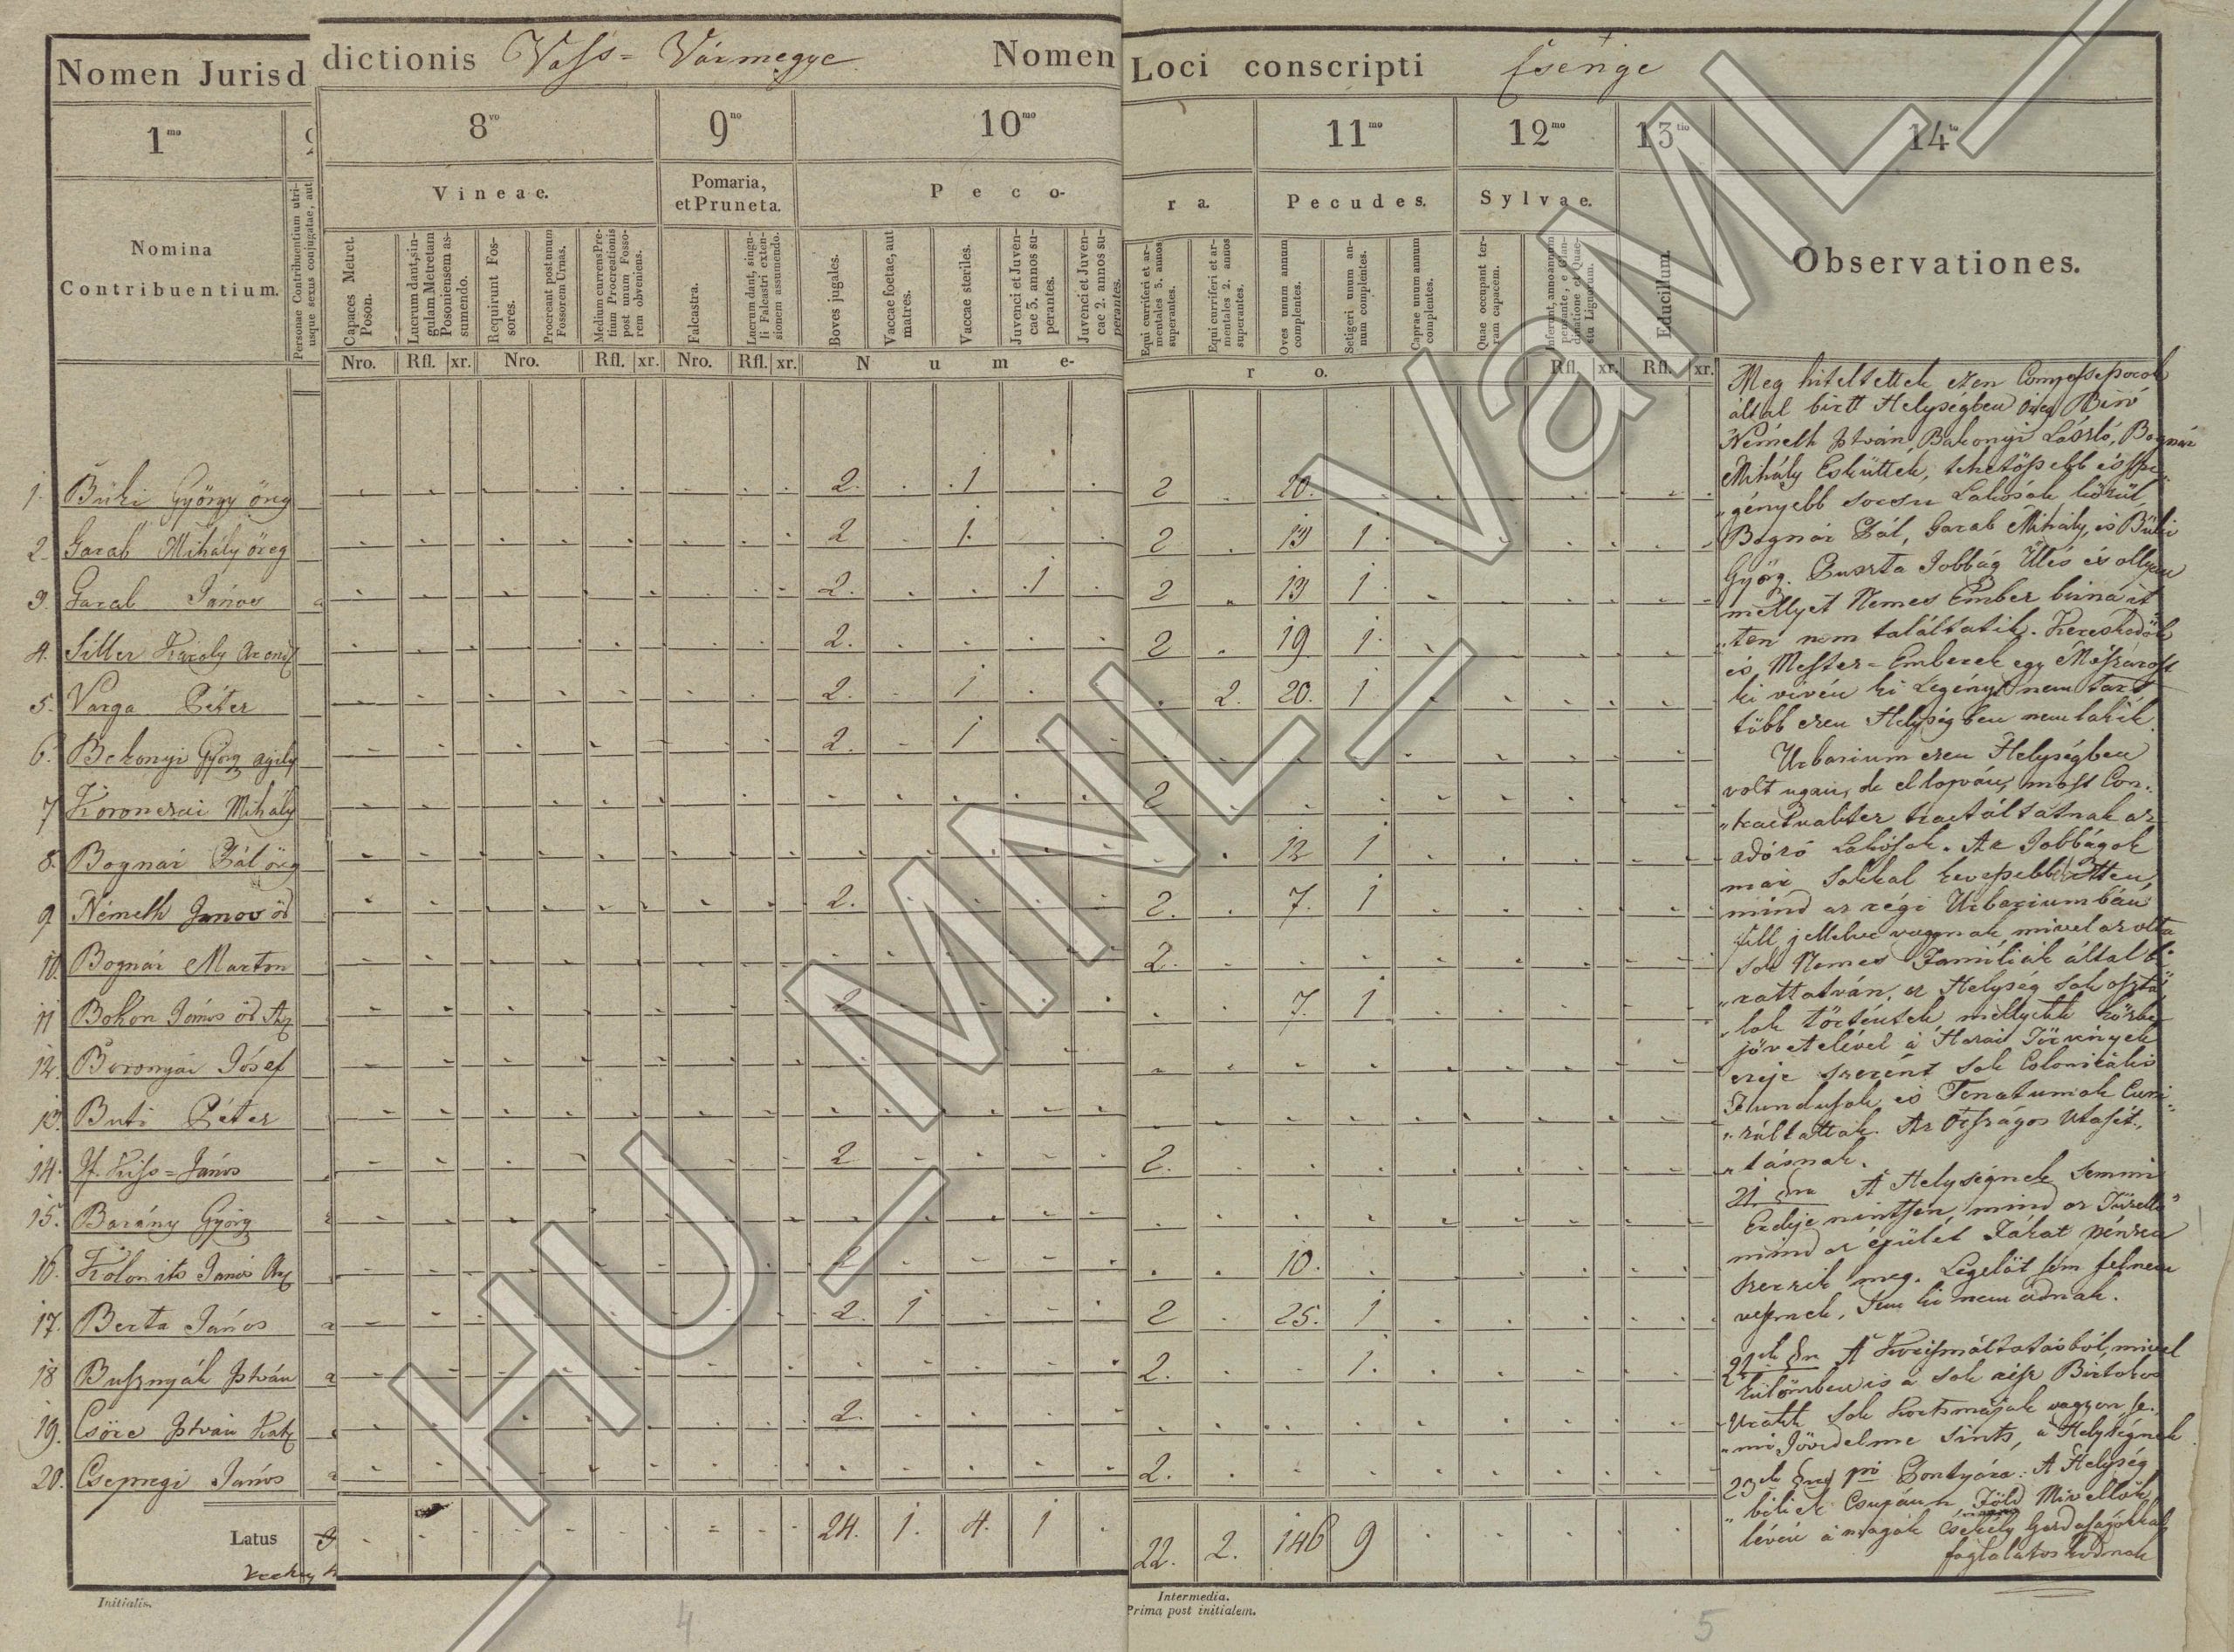 Nomen Jurisdictionis Vass= Vármegye Nomen Loci conscripti Csénge
1mo 8vo 9no 10mo 11mo 12mo 13tio 14to
Vineae. Pomaria, et Pruneta. Peco-ra. Pecudes. Sylvae. Observationes.
Nomina Contribuentium.
Personae Contribuentium utri-
usque sexus conjugatae, aut
Capaces Metret. Poson.
Lucrum dant, sin-
gulam Metretam
Posoniensem as-
sumendo.
Requirunt Fos-
sores.
Procreant post unum
Fossorem Urnas.
Medium currens Pre-
tium Procreationis
post unum Fosso-
rem obveniens.
Falcastra.
Lucrum dant, singu-
li Falcastri exten-
sionem assumendo.
Boves jugales.
Vaccae foetae, aut
matres.
Vaccae steriles.
Juvenci et Juven-
cae 3. annos su-
perantes.
Juvenci et Juven-
cae 2. annos su-
perantes.
Equi curriferi et ar-
mentales 3. annos
superantes.
Equi curriferi et ar-
mentales 2. annos
superantes.
Oves unum annum
complentes.
Setigeri unum an-
num complentes.
Caprae unum annum
complentes.
Quae occupant ter-
ram capacem.
Inferunt, anno annum
pensante, e Glan-
dinatione et Quae-
stu Lignorum.
Educillum.
Nro. Rfl. xr. Nro. Rfl. xr. Nro. Rfl. xr. Nume-ro. Rfl. xr. Rfl. xr.
1. Büki György öreg 2. 1 2 20.
2. Garab Mihály öreg 2 1. 2 13 1.
3. Garab János 2. 1 2 13 1
4. Siller Károly 2. 2 19 1.
5. Varga Péter 2. 1 2. 20. 1
6. Bekonyi Györg 2. 1
7 Koronczai Mihály 2
8. Bognár Pál öreg 12 1
9. Németh Janos öd 2. 2. 7. 1
10. Bognár Marton 2.
11 Bokon János öd 2 7. 1
12. Boronyai Jósef
13. Buti Péter
14. If. Kiss=János 2 2.
15. Barány Györg
16. Kolonits János 2 10.
17. Berta János 2. 1 2 25. 1
18 Busznyák István 2. 1.
19. Csöre István 2.
20. Csepregi János 2.
Latus 24. 1. 4. 1 22. 2. 146 9
Meg hiteltettek ezen
által birtt Helységben öreg Biró
Németh István Bakonyi László, Bognár
Mihály Esküttek, tehetössebb és sze-
"gényebb sorsu Lakosok közül
Bognár Pál, Garab Mihály, és Büki
Györg. Puszta Jobbág Ülés és ollyan
mellyet Nemes Ember birna it
"ten nem találtatik. Kereskedök
és Mester=Emberek egy Mészárost
ki vévén ki Legényt nem tart
több ezen Helységben nem lakik.
Urbarium ezen Helységben
volt ugyan, de el kopván, most Con-
"tractualiter tractáltatnak az
adózó Lakosok. Az Jobbágok
már sokkal kevesebben itten,
mind az régi Urbariumban
fell jellelve vagynak mivel az olta
sok Nemes Famíliák által bi-
"rattatván, ez Helység sok osztá-
"lok történtek mellyek közbe
jövetelével a Hazai Törvények
ereje szerént sok Colonicális
Fundusok és Tenatumok Curi-
"záltattak. Az Országos Utasit-
"tásnak.
21 §ra A Helységnek semmi
Erdeje nintsen, mind az Tüzellö
mind az épület Fákat pénzen
szerzik meg. Legelöt sem fel nem
vesznek, sem ki nem adnak.
22ik §ra A Korcsmáltatásból, mivel
külömben is a sok rész Birtokos
Uraik sok Kortsmájok vagyon se-
"mi Jövedelme sints, a Helységnek
23ik §ra pro Pontyára: A Helység
"béliek Csupánn Föld Mivellök
lévén a magok Csekély Gazdaságokkal
foglalatoskodnak
Initialis.
Intermedia.
Prima post initialem.
4
5
HU_MNL_VaML_I